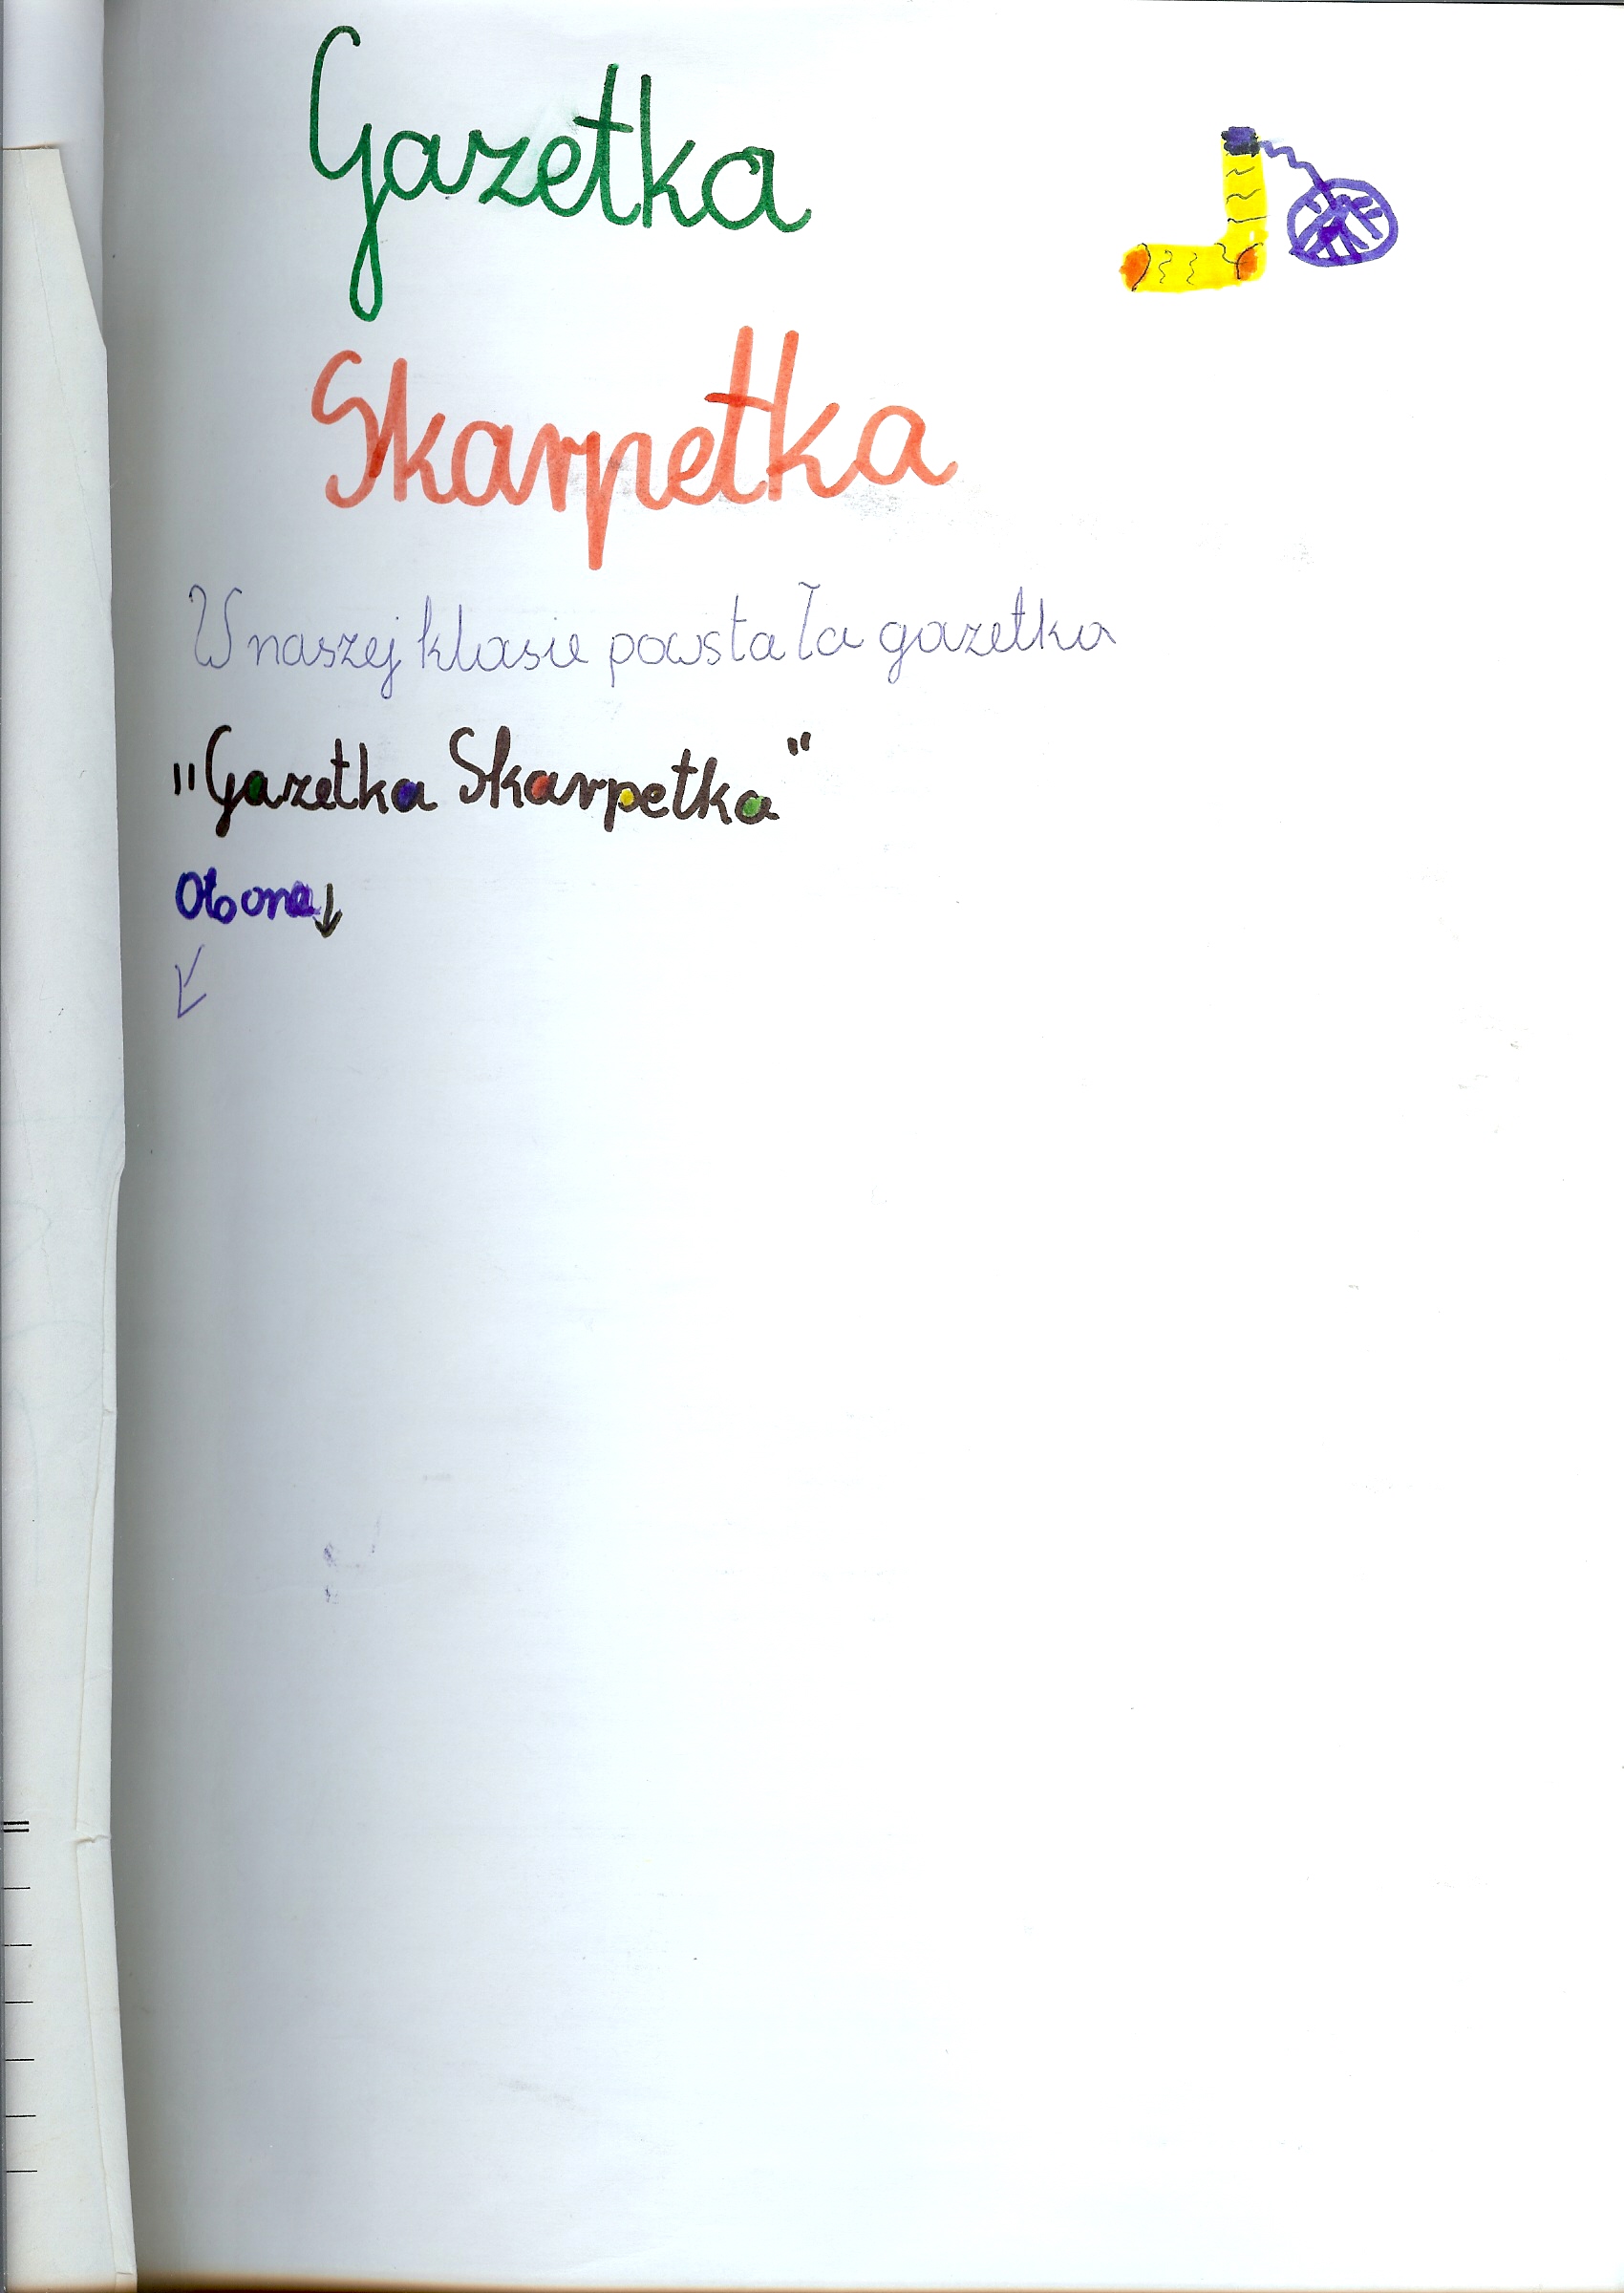 Gazetka
Skarpetka
W naszej klasie powstała gazetka
"Gazetka Skarpetka"
Oto ona ↓